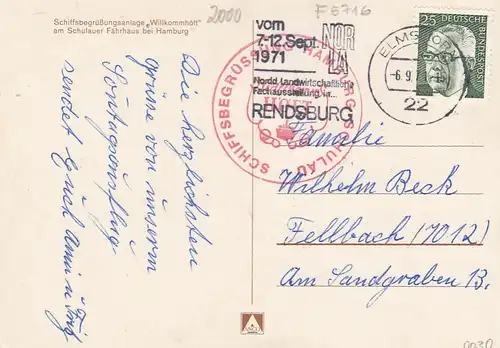 Schiffsbegrüßungsanlage „Willkommhöft"
am Schulauer Fährhaus bei Hamburg
2000
F 5716
vom
7.-12. Sept.
1971
NOR
LA
Nordd. Landwirtschaftliche
Fachausstellung in
RENDSBURG
ELMSHORN
-6.9.7
22
25
DEUTSCHE
BUNDESPOST
SCHIFFSBEGRÜSSUNG HAMBURG-SCHULAU
HÖFT
Die herzlichsten
Grüße von unserm
Sonntagsausflug
sendet Euch
Familie
Wilhelm Beck
Fellbach (7012)
Am Sandgraben 13.